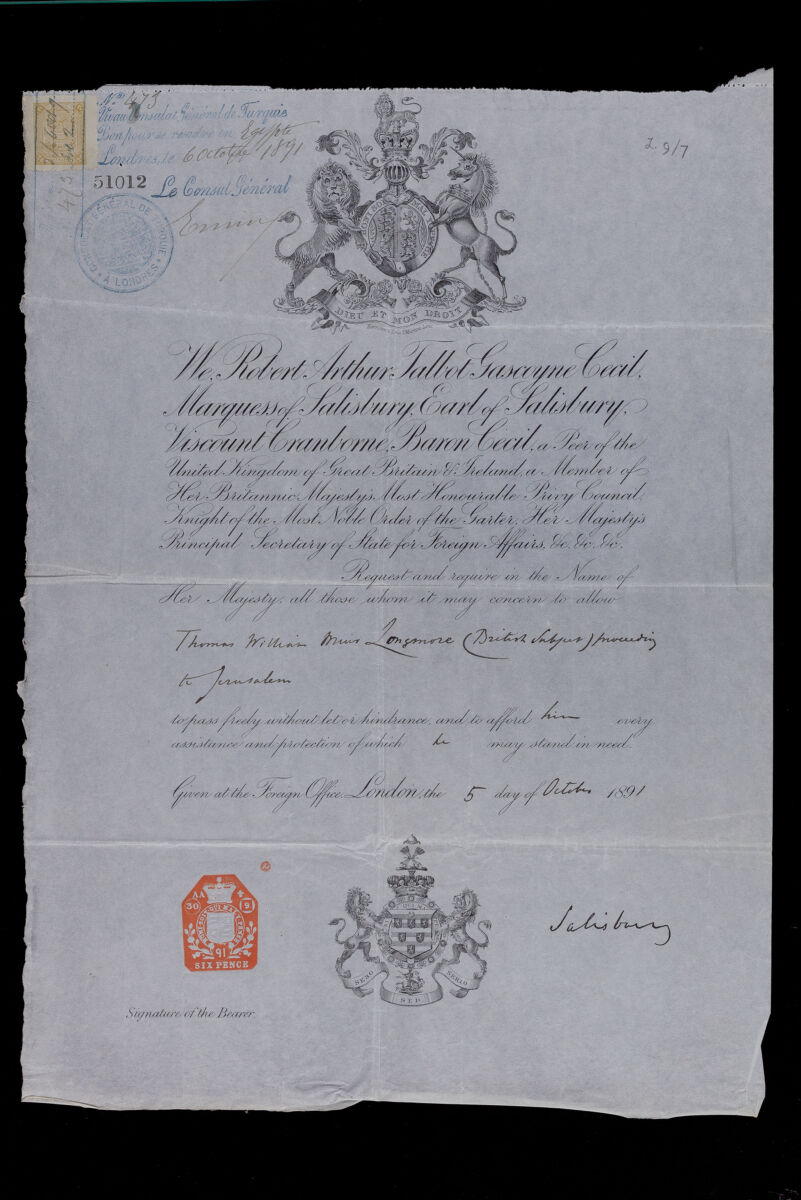 No 473
Vu au Consulat Général de Turquie
Bon pour se rendre en Egypte
Londres, le 6 Octobre 1891
51012 Le Consul Général
CONSULAT GÉNÉRAL DE TURQUIE
A LONDRES
473
I. 9/7
DIEU ET MON DROIT
We, Robert Arthur Talbot Gascoyne Cecil,
Marquess of Salisbury, Earl of Salisbury,
Viscount Cranborne, Baron Cecil, a Peer of the
United Kingdom of Great Britain & Ireland, a Member of
Her Britannic Majesty's Most Honourable Privy Council,
Knight of the Most Noble Order of the Garter, Her Majesty's
Principal Secretary of State for Foreign Affairs, &c. &c. &c.
Request and require in the Name of
Her Majesty, all those whom it may concern to allow
Thomas William Muir Longmore (British Subject) proceeding
to Jerusalem
to pass freely without let or hindrance, and to afford him every
assistance and protection of which he may stand in need.
Given at the Foreign Office, London, the 5 day of October 1891
AA
30 9
91
SIX PENCE
SERO SED SERIO
Salisbury
Signature of the Bearer.